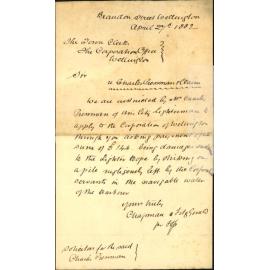 Brandon Street Wellington
April 27th 1882
The Town Clerk
The Corporation Office
Wellington
Sir
Charles Plowman's Claim
We are instructed by Mr Charles
Plowman of this City Lighterman to
apply to the Corporation of Wellington
through you asking payment of the
sum of £144 being damage
to the Lighter Hope by striking on
a pile negligently left by the Corporation
servants in the navigable water
of the harbour
Yours truly
Chapman & FitzGerald
Solicitors for the said
Charles Plowman